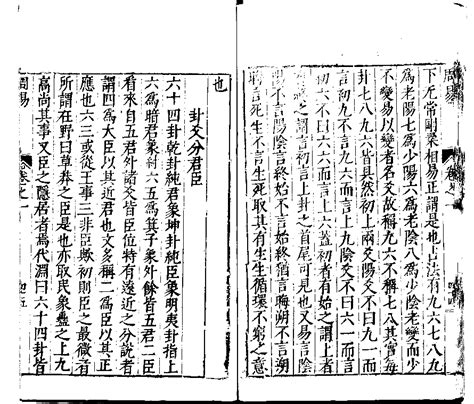 周易 卷之一
下无常剛柔相易正謂是也占法有九六七八九
為老陽七為少陽六為老陰八為少陰老變而少
不變易以變者名爻故稱九六不稱七八其實每
卦七八九六皆具然初上兩爻陽爻不曰九一而
言初九不曰六而言上九陰爻不曰六一而言
初六不曰六六而言上六蓋初者有始之謂上者
之謂言初言上卦之首尾可見也又易言陰
陽不言陽陰言終始不言始終猶言晦朔不言朔
晦言死生不言生死取其生生循環不窮之意
也
卦爻分君臣
六十四卦乾卦純君象坤卦純臣象明夷卦指上
六為暗君象紂六五為箕子象外餘皆五君二臣
看來自五君外諸爻皆臣位特有遠近之分說者
謂四為大臣以其近君也文多稱二為臣以其正
應也六三或從王事三非臣歟初則臣之最微者
所謂在野曰草莽之臣是也亦取民象蠱之上九
高尚其事又臣之隱居者焉代淵曰六十四卦皆
周易 卷之一 五